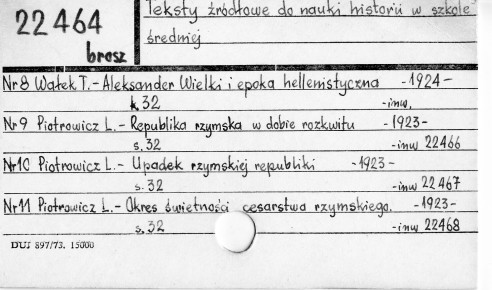 22 464
brosz
Teksty źródłowe do nauki historii w szkole
średniej
Nr 8 Wałek T. - Aleksander Wielki i epoka hellenistyczna - 1924 -
s. 32 - inw.
Nr 9 Piotrowicz L. - Republika rzymska w dobie rozkwitu - 1923 -
s. 32 - inw 22466
Nr 10 Piotrowicz L. - Upadek rzymskiej republiki - 1923 -
s. 32 - inw 22467
Nr 11 Piotrowicz L. - Okres świetności cesarstwa rzymskiego. - 1923 -
s. 32 - inw 22468
DUJ 897/73. 15000